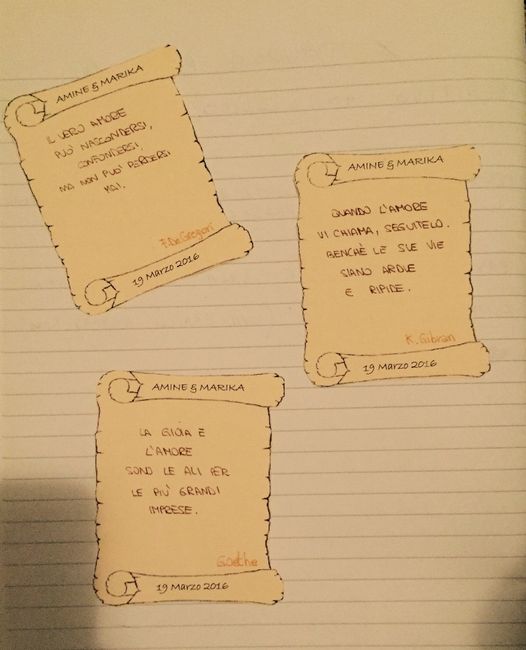 AMINE & MARIKA
IL VERO AMORE
PUÒ NASCONDERSI,
CONFONDERSI,
MA NON PUÒ PERDERSI
MAI.
F. De Gregori
19 Marzo 2016
AMINE & MARIKA
QUANDO L'AMORE
VI CHIAMA, SEGUITELO.
BENCHÈ LE SUE VIE
SIANO ARDUE
E RIPIDE.
K. Gibran
19 Marzo 2016
AMINE & MARIKA
LA GIOIA E
L'AMORE
SONO LE ALI PER
LE PIÙ GRANDI
IMPRESE.
Goethe
19 Marzo 2016